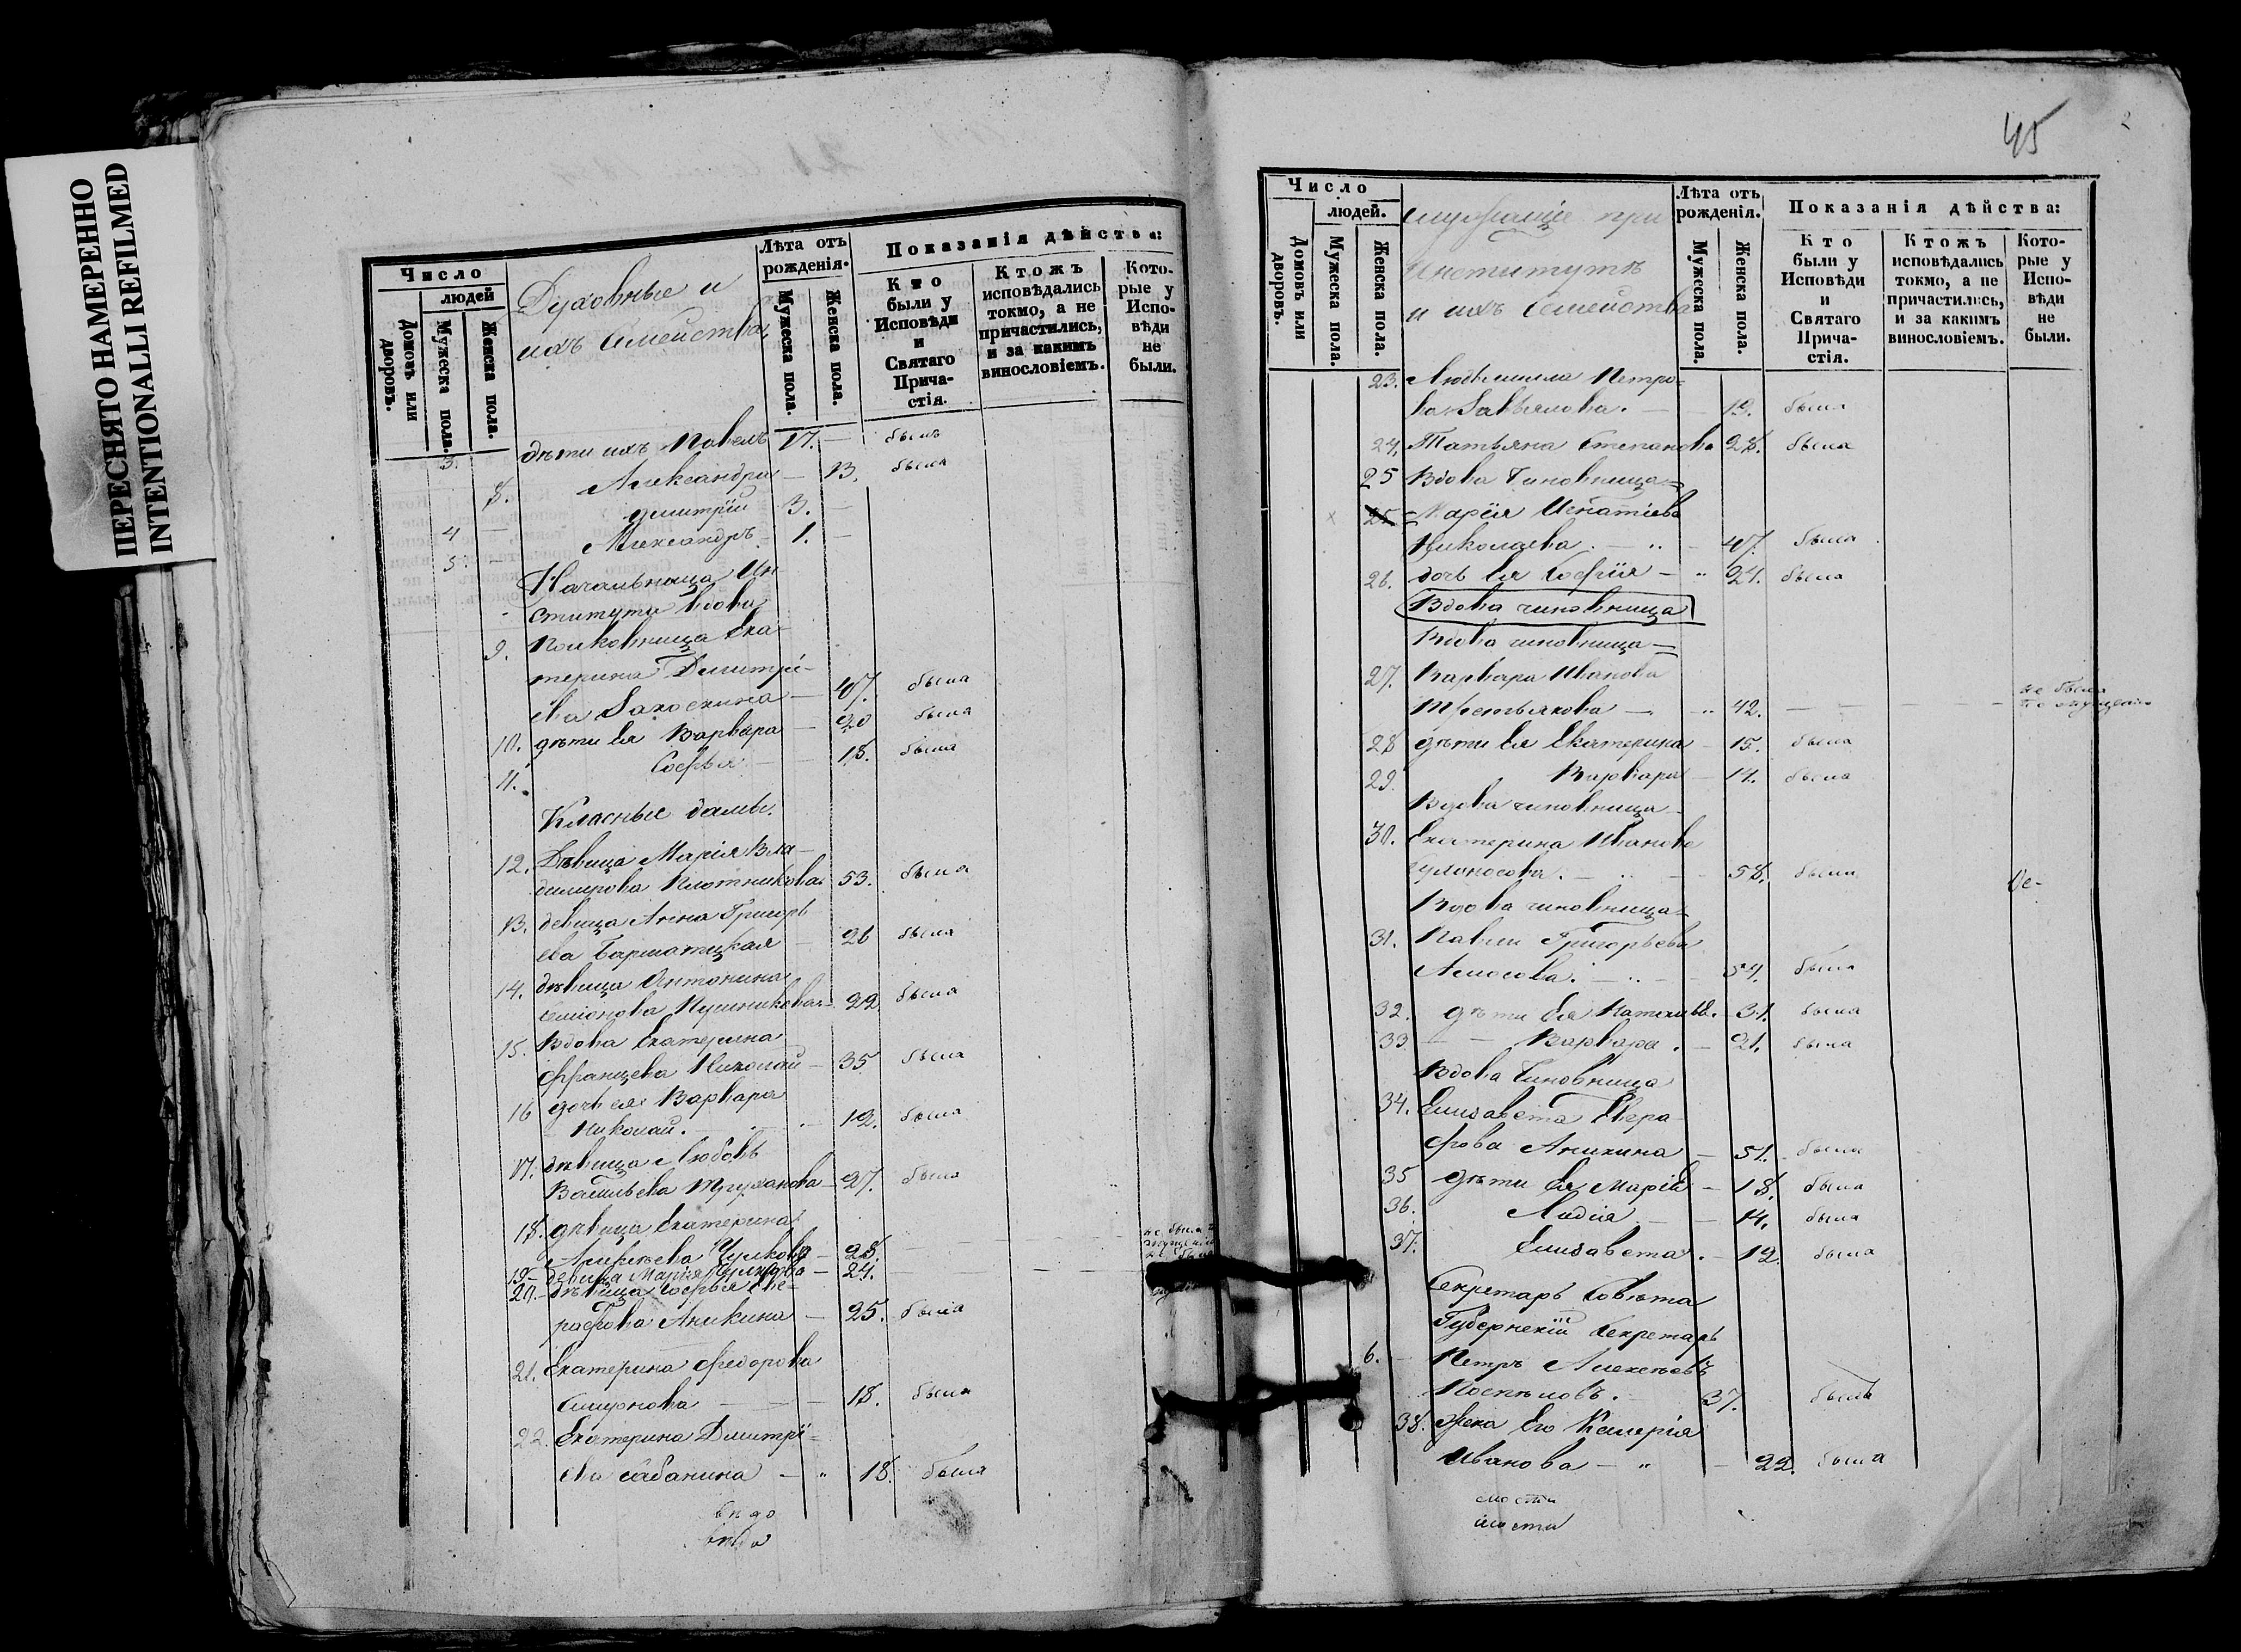 ПЕРЕСНЯТО НАМЕРЕННО
INTENTIONALLI REFILMED
Число
людей
Домовъ или дворовъ.
Мужеска пола.
Женска пола.
Духовные и
ихъ Семейства
Лѣта отъ рожденія.
Мужеска пола.
Женска пола.
Показанія дѣйства:
Кто были у Исповѣди и Святаго Причастія.
Ктожъ исповѣдались токмо, а не причастились, и за какимъ винословіемъ.
Которые у Исповѣди не были.
3. дѣти ихъ Павелъ 17. — былъ
8. Александра — 13. была
4 — Димитрій 3. —
5 — Александръ 1. —
Начальница Ин-
ститута вдова
9. Полковница Ека-
терина Дмитрі-
ева — 47. была
10. дѣти Ея Варвара — 20 была
11. Софья — 18. была
Класные дамы.
12. Дѣвица Марія Вла-
димирова Плотникова 53. была
13. девица Анна Григорь
ева — 26 была
14. дѣвица Антонина
Семіонова — 22 была
15. Вдова Екатерина
Францева Николай — 35 была
16 дочь ея Варвара
Николай. — 12. была
17. дѣвица Любовь
Васильева — 27. была
18. дѣвица Екатерина
Чулкова — 28. — не была
19 — девица Марія Чулкова — 24. —
20. — дѣвица Софья Ев-
графова Аникина — 25. была
21. Екатерина Федорова
Смирнова — 18. была
22. Екатерина Дмитрі-
ева Сабанина — " 18. была
45
2
Число
людей.
Домовъ или дворовъ.
Мужеска пола.
Женска пола.
служащіе при
Институтѣ
и ихъ Семейства
Лѣта отъ рожденія.
Мужеска пола.
Женска пола.
Показанія дѣйства:
Кто были у Исповѣди и Святаго Причастія.
Ктожъ исповѣдались токмо, а не причастились, и за какимъ винословіемъ.
Которые у Исповѣди не были.
23. Людмила Петро-
ва Завьялова. — 19. была
24. Татьяна Степанова 28. была
25 Вдова Чиновница
25 Марія Игнатіева
Николаева. — 47. была
26. дочь Ея Софія — " 24. была
Вдова чиновница
Вдова чиновница —
27. Варвара Иванова
Третьякова — " 42. — не была
28 дѣти Ея Екатерина — 15. была
29. Варвара — 14. была
Вдова чиновница
30. Екатерина Иванова
— 58. была
Вдова чиновница
31. Павла Григорьева
Амосова. — 54. была
32. дѣти Ея — 31. была
33 — Варвара. — 21. была
Вдова Чиновница
34. Елизавета Евгра-
фова Аникина — 51. была
35 дѣти Ея Марія — 18. была
36. Лидія — 14. была
37. Елизавета. — 12. была
Секретарь Совѣта
Губернскій Секретарь
6. — Петръ Алексѣевъ
Поспѣловъ. — 37. былъ
38. Жена Его
Иванова — " — 22. была